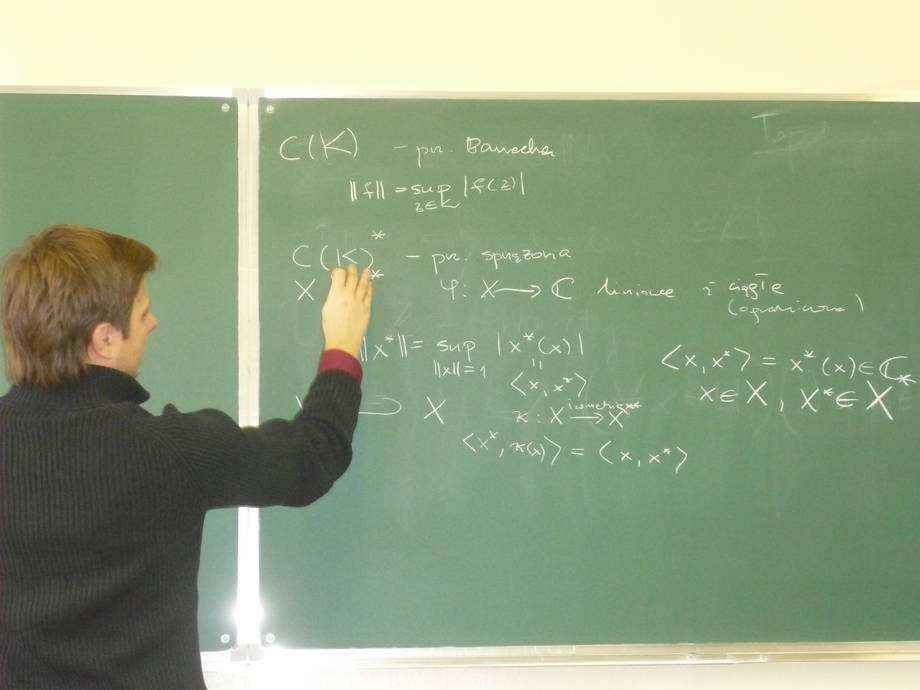 C(K) – pr. Banacha
||f|| = sup |f(z)|
z∈K
C(K)* – pr. sprzężona
X * φ: X → ℂ liniowe i ciągłe
(ograniczone)
||x*|| = sup |x*(x)|
||x||=1
||
⟨x, x*⟩
⟨x, x*⟩ = x*(x) ∈ ℂ
x ∈ X, x* ∈ X*
⊃ X
κ: X → X**
isometria
⟨x*, κ(x)⟩ = ⟨x, x*⟩